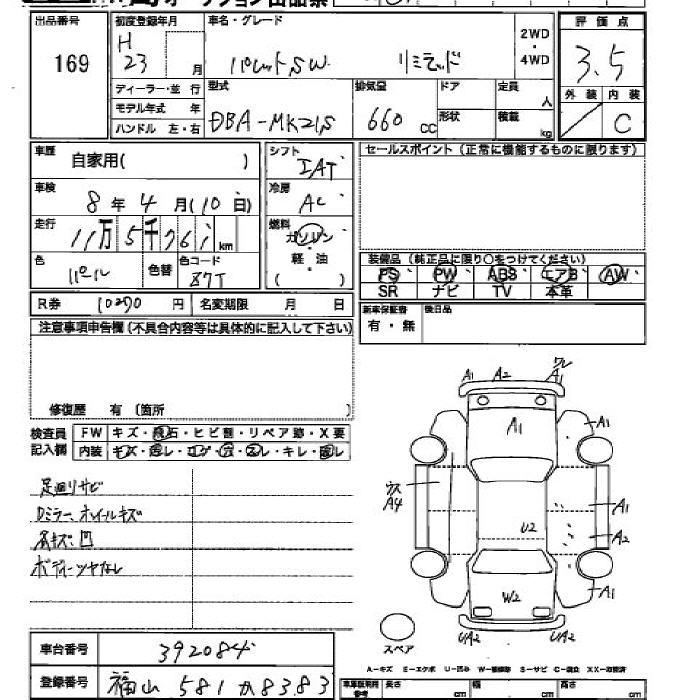 出品番号
169
初度登録年月
H
23 月
ディーラー・並 行
モデル年式 年
ハンドル 左・右
車名・グレード
パレットSW リミテッド
2WD
・
4WD
評 価 点
3.5
外 装 内 装
C
型式
DBA-MK21S
排気量
660 CC
ドア
形状
定員
人
積載
kg
車歴
自家用( )
車検
8 年 4 月(10 日)
走行
11万5千761km
色
パール
色替
色コード
シフト
IAT
冷房
AC
燃料
ガソリン
軽・油
( )
セールスポイント(正常に機能するものに限ります)
装備品(純正品に限り○をつけてください)
PS PW ABS エアB AW
SR ナビ TV 本革
新車保証書
有・無
後日品
R券 10290 円 名変期限 月 日
注意事項申告欄(不具合内容等は具体的に記入して下さい)
修復歴 有(箇所 )
検査員
記入欄
FW キズ・飛石・ヒビ割・リペア跡・X要
内装 キズ・汚レ・コゲ・穴・スレ・キレ・
足廻りサビ
Dミラー、ホイールキズ
ボディーツヤなし
A1 A2 A1
A1
A1
A4
A1
U2 A2
W2 A1
UA2 UA2
スペア
A－キズ E－エクボ U－凹み S－サビ C－腐食
車台番号
392084
登録番号
福山 581 か 8383
長さ cm 幅 cm 高さ cm